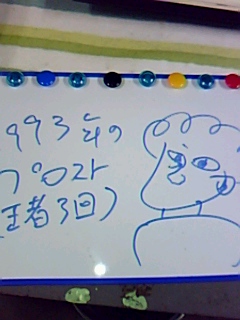 993年の
プロスト
(王者3回)